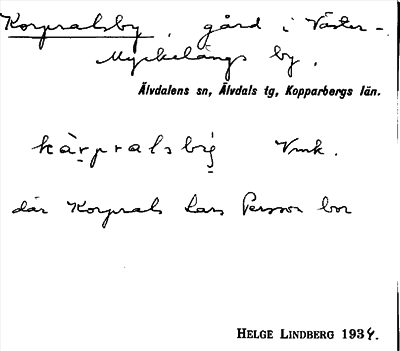 Korpralsby, gård i Väster-
Myckelängs by.
Älvdalens sn, Älvdals tg, Kopparbergs län.
kàrpralsbig̣ Vmk.
där Korprals Lars Persson bor
HELGE LINDBERG 1934.